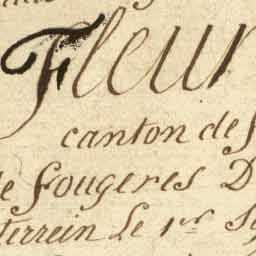 Fleur
canton de
de fougeres D
terrein Le 1er